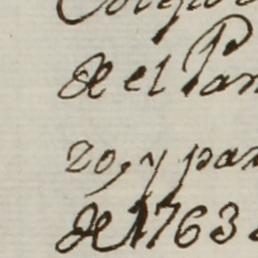 de el Par
zo, y par
de 1763